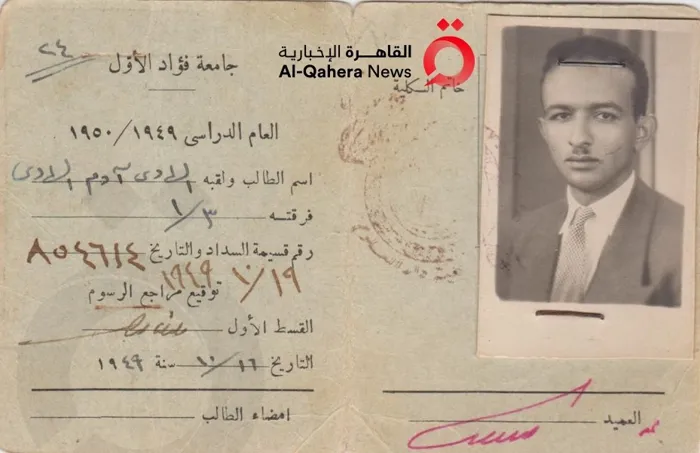 ٢٤
جامعة فؤاد الأول
العام الدراسى ١٩٤٩/١٩٥٠
اسم الطالب ولقبه الهادى آدم الهادى
فرقته ١/٣
رقم قسيمة السداد والتاريخ
١٠/١٩ ١٩٤٩
توقيع مراجع الرسوم
القسط الأول
التاريخ ١٠/١٦ سنة ١٩٤٩
امضاء الطالب
القاهرة الإخبارية
Al-Qahera News
خاتم الكلية
العميد